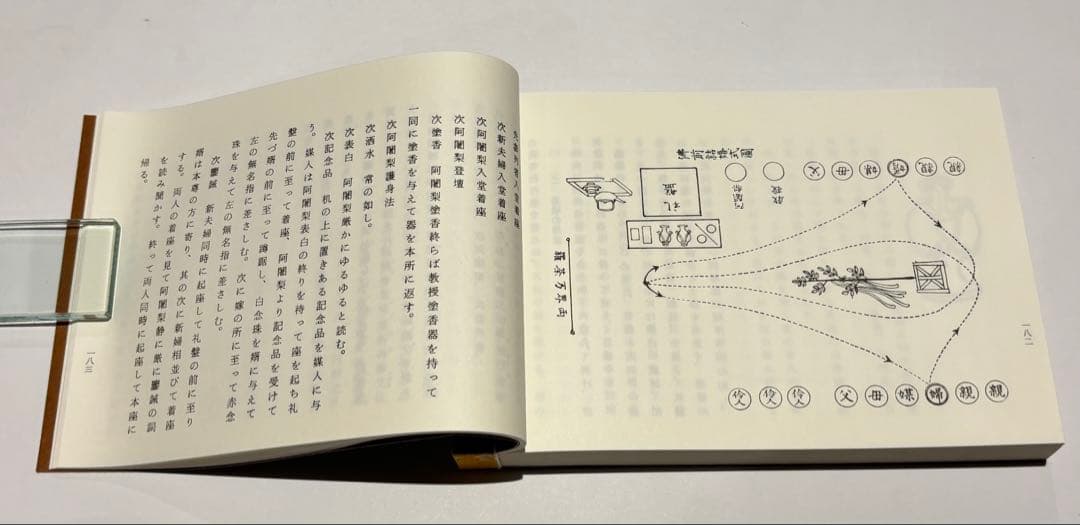 佛前結婚式圖
父 母 媒 婿 親 親
礼盤
伶人 伶人 伶人 父 母 媒 婦 親 親
一八二
列者入堂着座
次新夫婦入堂着座
次阿闍梨入堂着座
次阿闍梨登壇
次塗香　阿闍梨塗香終らば教授塗香器を持って
一同に塗香を与えて器を本所に返す。
次阿闍梨護身法
次洒水　常の如し。
次表白　阿闍梨厳かにゆるゆると読む。
次記念品　机の上に置きある記念品を媒人に与
う。媒人は阿闍梨表白の終りを待って座を起ち礼
盤の前に至って着座、阿闍梨より記念品を受けて
先づ婿の前に至って蹲踞し、白念珠を婿に与えて
左の無名指に差さしむ。次に嫁の所に至って赤念
珠を与えて左の無名指に差さしむ。
次鑒誡　新夫婦同時に起座して礼盤の前に至り
婿は本尊の方に寄り、其の次に新婦相並びて着座
する。両人の着座を見て阿闍梨静に厳に鑒誡の詞
を読み聞かす。終って両人同時に起座して本座に
帰る。
一八三